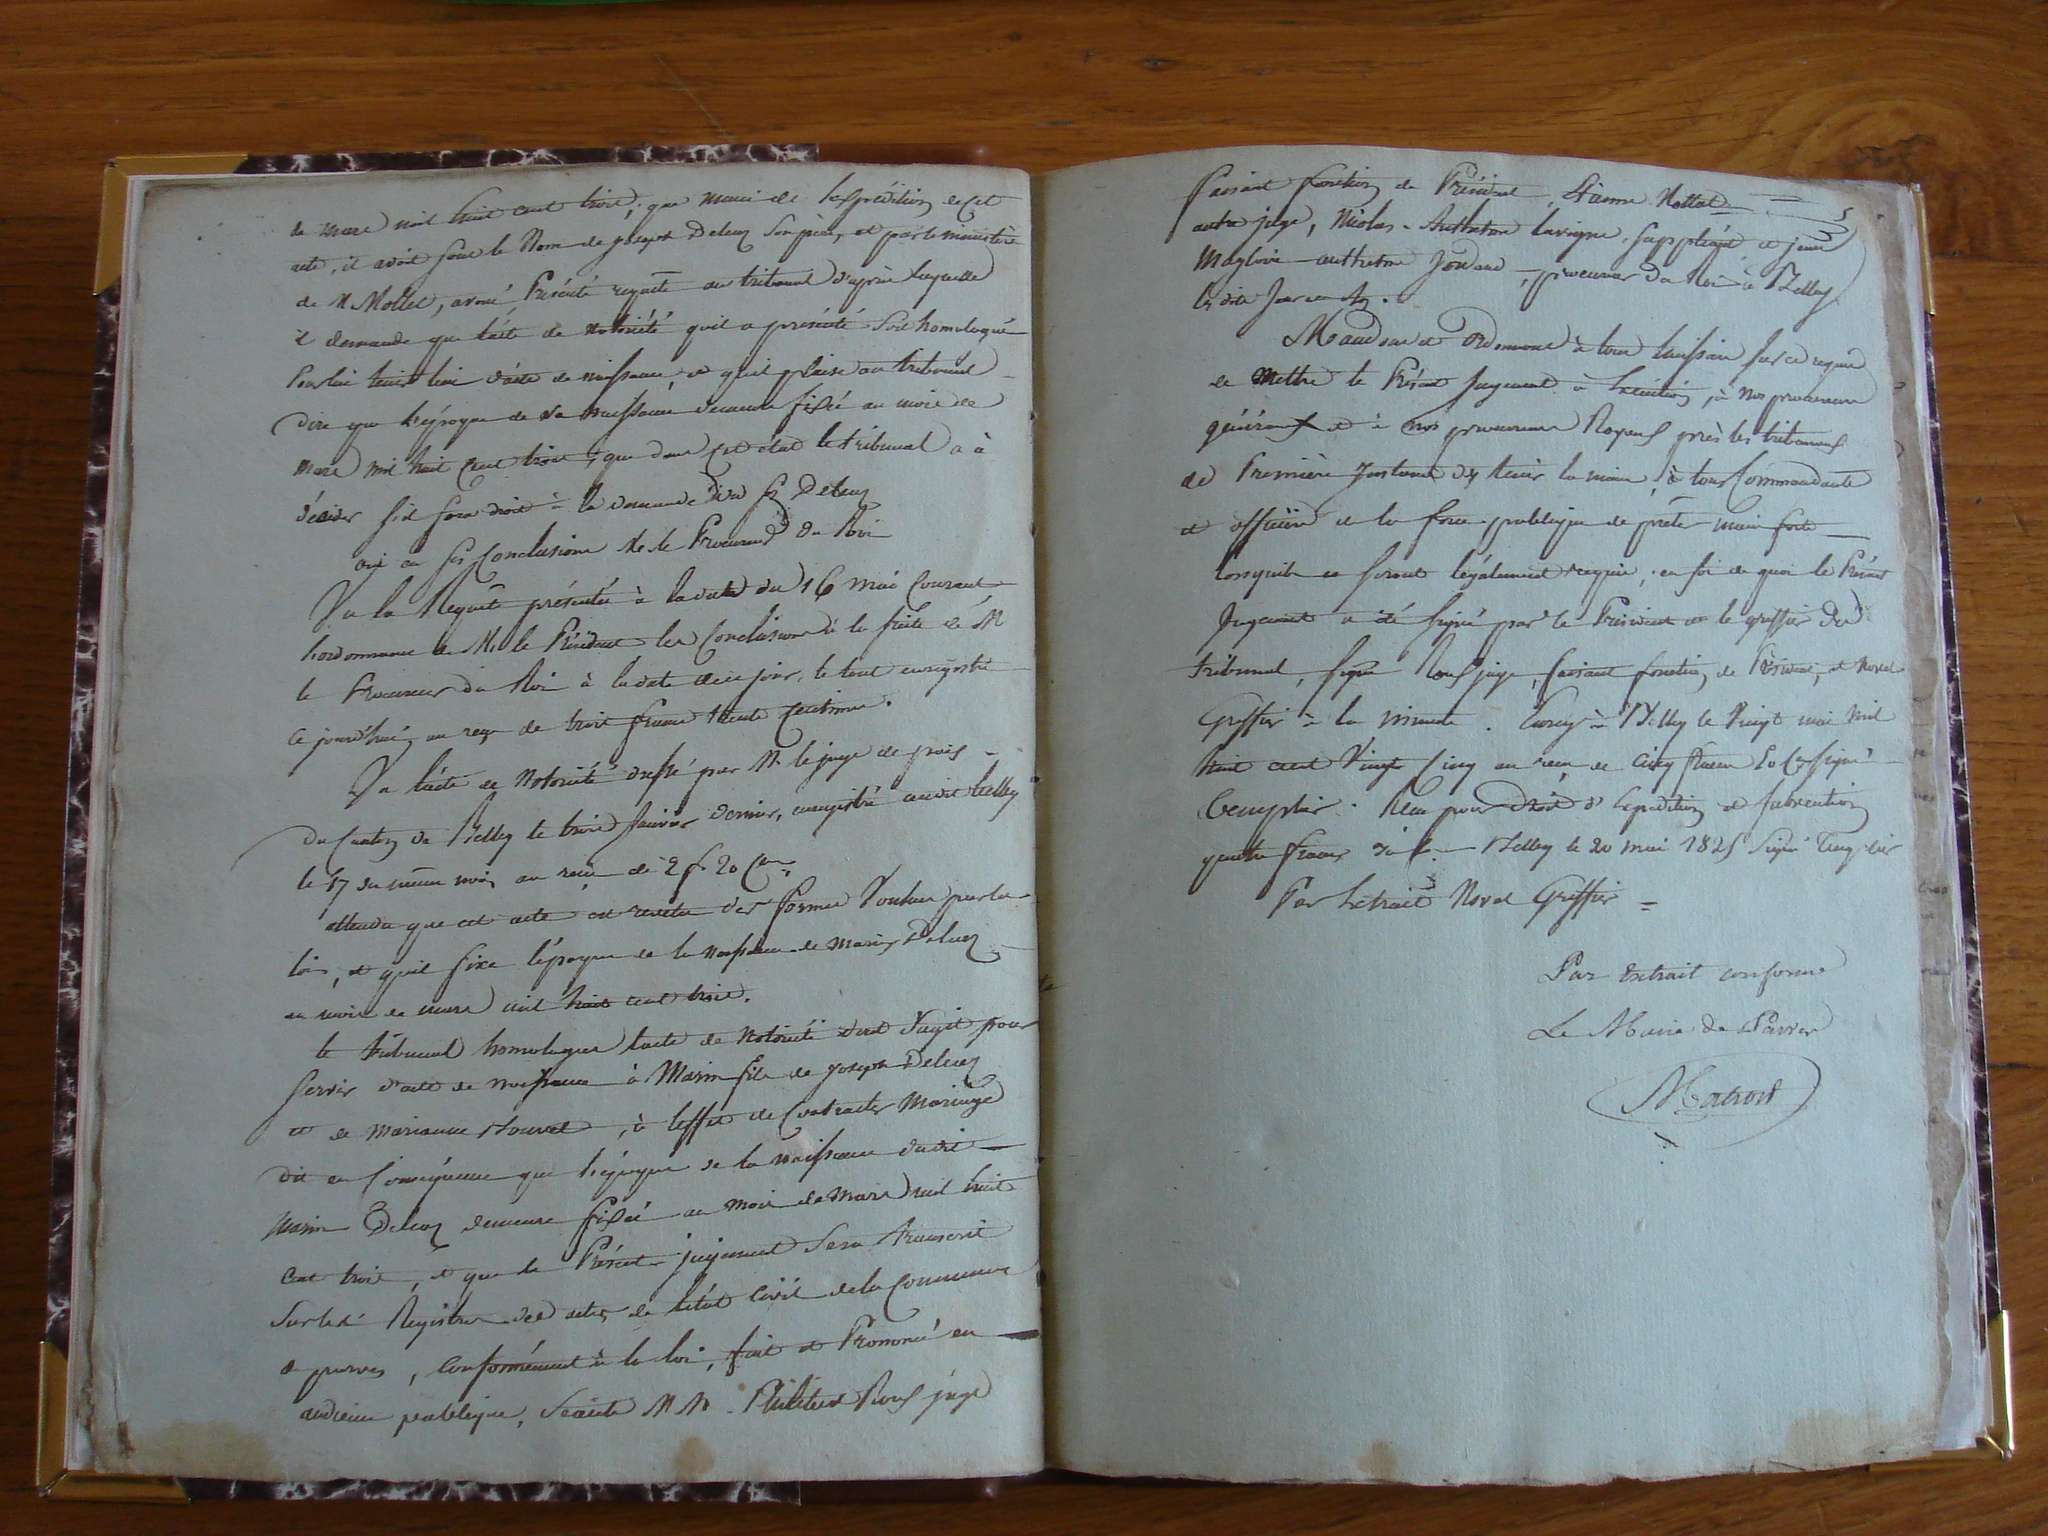 de mars mil huit cent trois, que muni de l'expédition de cet
acte, il avoit sous le Nom de joseph Deluz Son père, et par le ministère
de M Mollet, avoué Présenté requête au tribunal d'après laquelle
il demande que l'acte de notoriété qu'il a présenté Soit homologué
Pour lui tenir lieu d'acte de naissance, et qu'il plaise au tribunal
dire que l'époque de sa naissance demeure fixée au mois de
mars mil huit Cent trois, que dans cet état le tribunal a à
décider s'il fera droit à la demande du Sr Deluz
oui en ses Conclusions M. le Procureur du Roi
Vu la Requête présentée à la date du 16 mai Courant
l'ordonnance de M. le Président les Conclusions à la suite de M
le Procureur du Roi à la date de ce jour, le tout enregistré
ce jourd'hui, au reçu de trois francs trente Centimes.
Vu l'acte de Notoriété dressé par M. le juge de paix
du Canton de Belley le trois Janvier dernier, enregistré audit belley
le 17 du même mois, au reçu de 2 f. 20 Cen.
attendu que cet acte est revetu des formes Voulues par la
loi, et qu'il fixe l'époque de la naissance de Marin Deluz
au mois de mars mil huit cent trois.
le tribunal homologue l'acte de Notoriété dont s'agit pour
Servir d'acte de naissance à Marin fils de joseph Deluz
et de marianne, à l'effet de Contracter Mariage
dit en Conséquence que l'époque de la naissance dudit
Marin Deluz demeure fixée au Mois de Mars mil huit
Cent trois, et que le Présent jugement Sera transcrit
Sur les Registres des actes de l'état Civil de la Commune
de parves, Conformément à la loi, fait et Prononcé en
audience publique, Séants MM. Philibert Roux juge
Faisant fonction de Président, Etienne Mollet
autre juge, Nicolas Anthelme Lavigne Suppléant et jean
Magloire anthelme, procureur du Roi à Belley
les dits Jour et an.
Mandons et Ordonnons à tous huissiers sur ce requis
de Mettre le Présent Jugement à Exécution, à Nos procureurs
généraux et à nos procureurs Royaux près les tribunaux
de Première Instance d'y tenir la main, à tous Commandants
et officiers de la force publique de prêter main forte
lorsqu'ils en Seront légalement requis, en foi de quoi le Présent
Jugement a été Signé par le Président et le greffier du
tribunal, Signé Roux juge, faisant fonction de Président, et Novel
Greffier à la minute. Enreg. à Belley le Vingt mai Mil
huit cent Vingt Cinq au reçu de Cinq francs 50 Cs. Signé
Templier. Reçu pour Droit d'Expédition et Subvention
quatre francs Belley le 20 mai 1825 Signé Templier
Par Extrait Novel Greffier
Par Extrait conforme
Le Maire de Parves